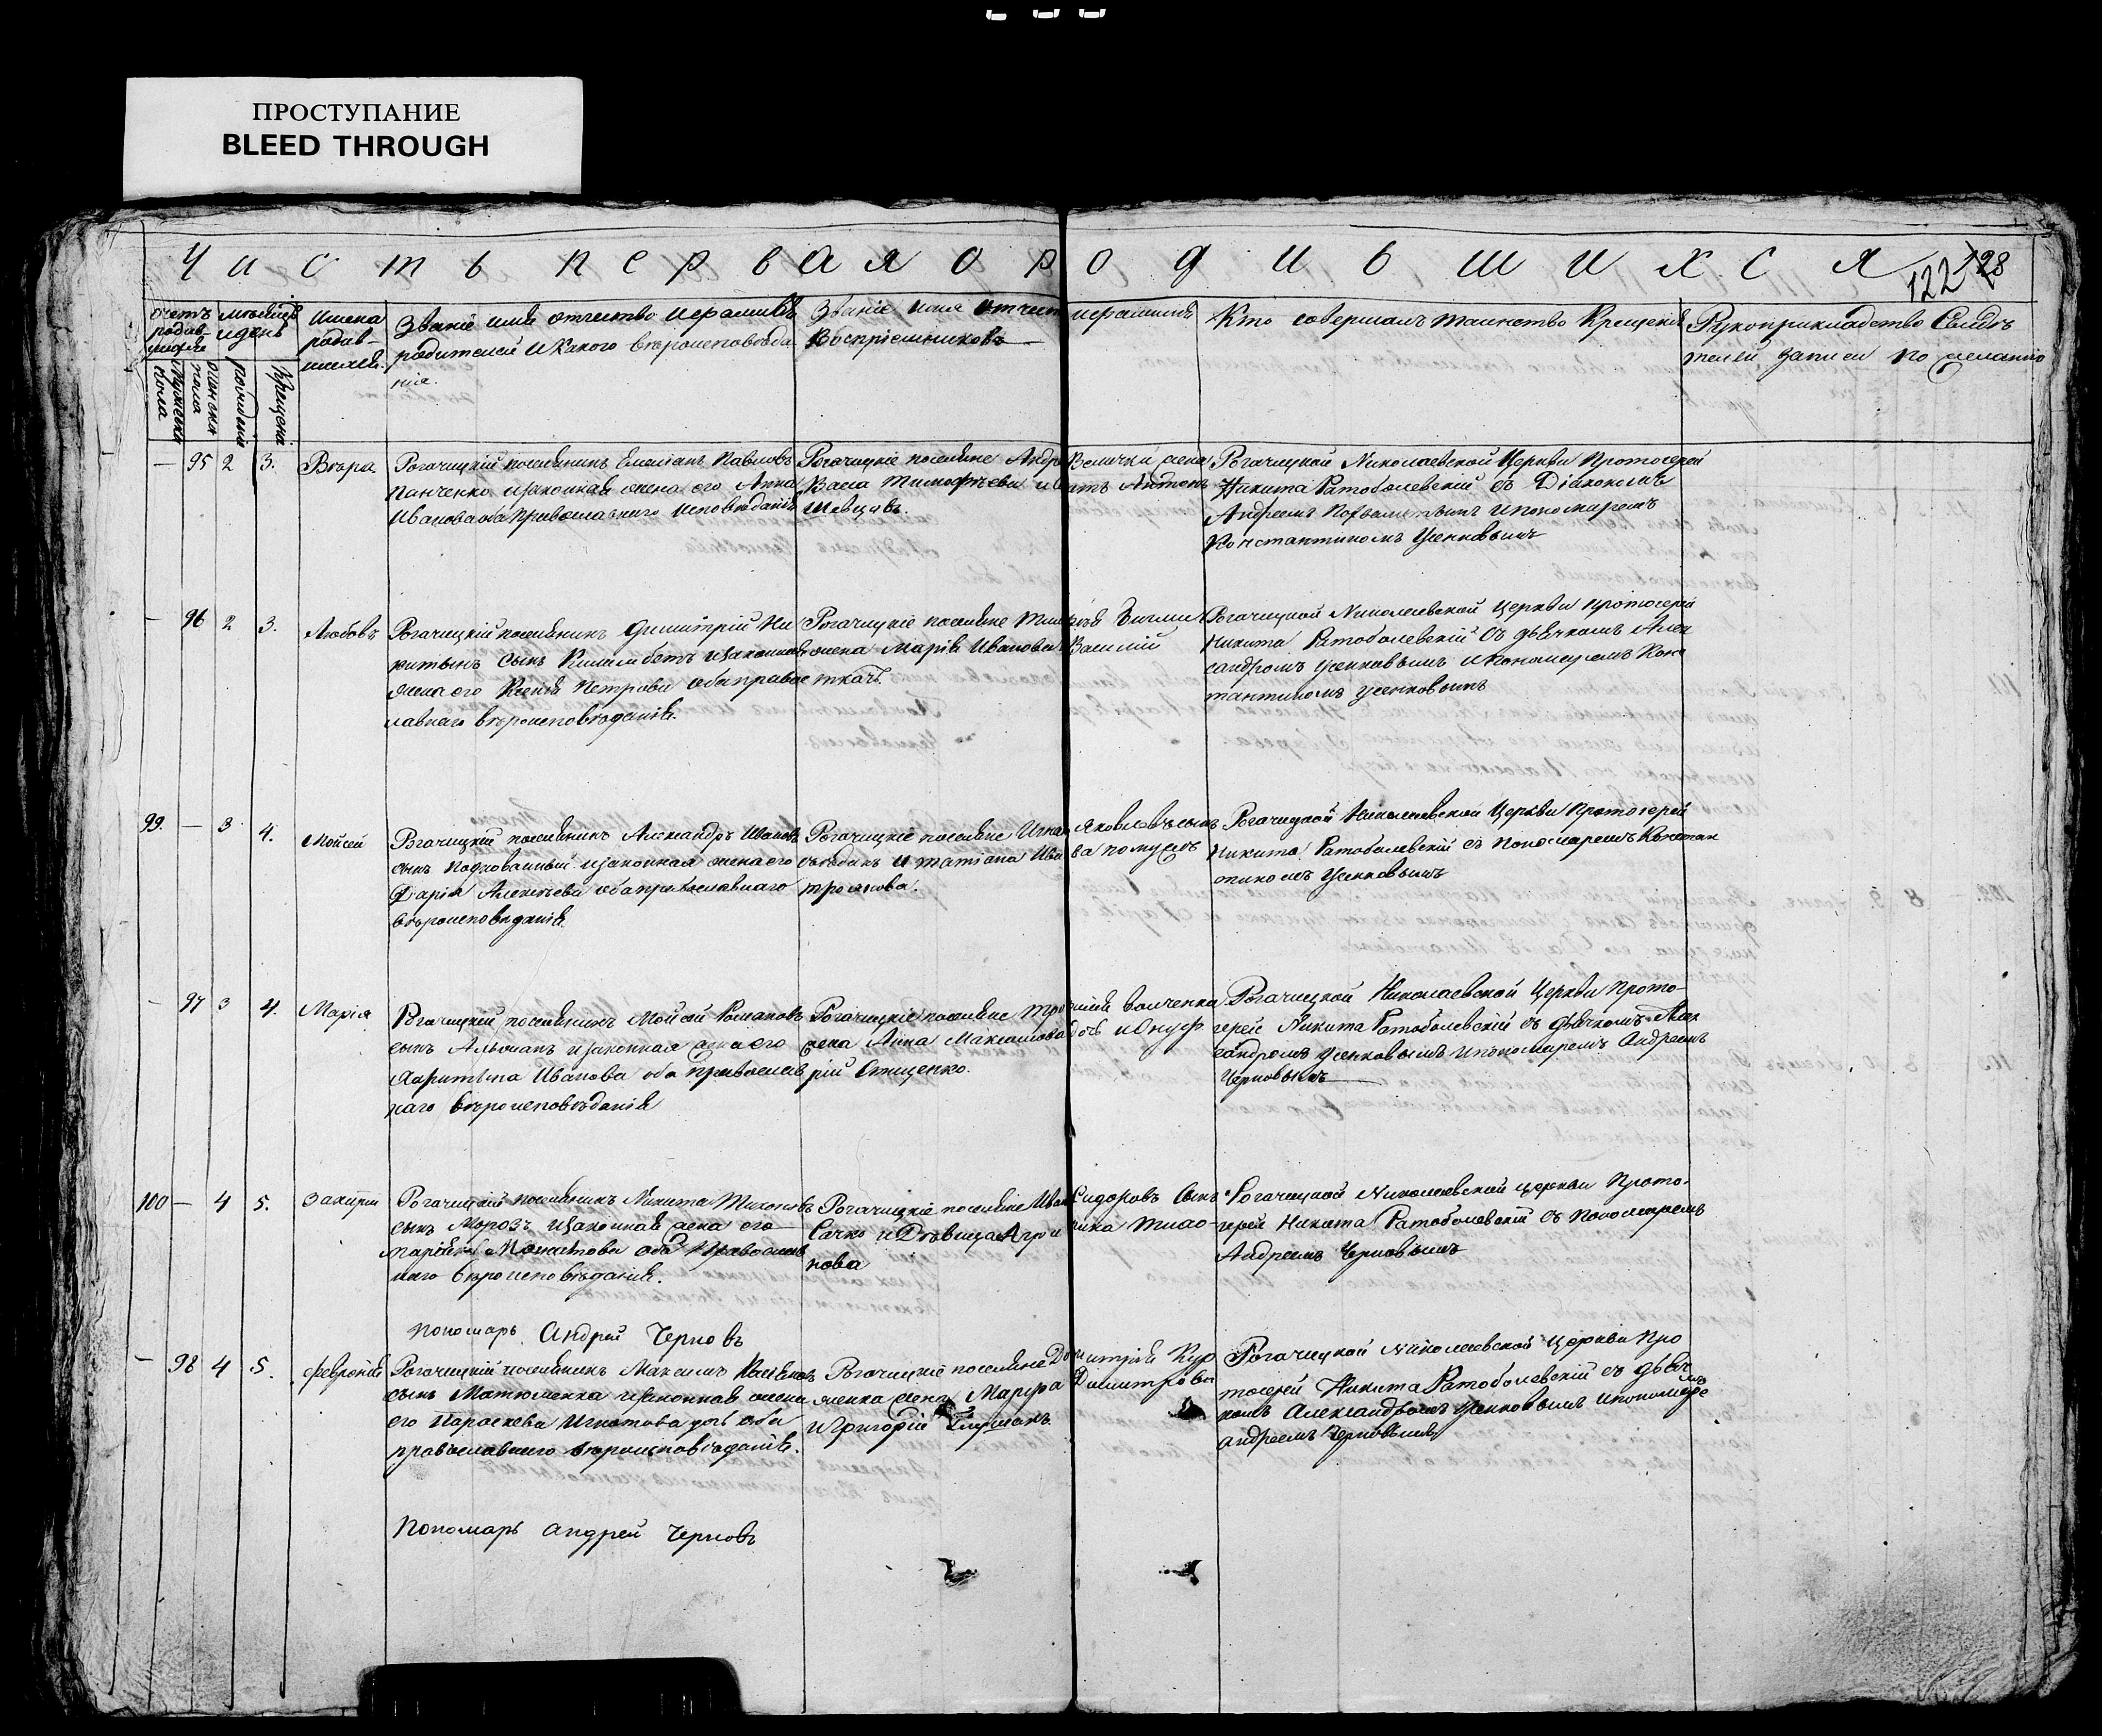 ПРОСТУПАНИЕ
BLEED THROUGH
Часть перваяо родившихся
122 128
Счетъ родив-шихся
Мужеска пола
Женска пола
месяцъ и день
рождения
крещения
Имена родив-шихся.
Званіе имя отчество ифамилія
родителей икакого вѣроисповѣда
нія.
Званіе имя отчест ифамилія
Воспріемниковъ
Кто совершалъ таинство Крещенія
Рукоприкладство Свидѣ
телей записи по желанію
— 95 2 3. Вѣра
Рогачицкій поселянинъ Емеліанъ Павловъ
Панченко изаконная жена его Анна
Иванова оба Православнаго Исповѣданія
Рогачицкіе поселяне Андр Величка жена
Васса Тимофѣева и Антонъ
Шевцовъ.
Рогачицкой Николаевской Церкви Протоіерей
Никита Ратоболевскій съ Діакономъ
Андреемъ ипономаремъ
Константиномъ Усенковымъ
— 96 2 3. Любовь
Рогачицкій поселянинъ Димитрій Ни
китинъ сынъ изаконная
жена его Ксенія Петрова оба правос
лавнаго вѣроисповѣданія.
Рогачицкіе поселяне
жена Марія Иванова Василій
ткачъ.
Рогачицкой Николаевской Церкви Протоіерей
Никита Ратоболевскій съ дьячкомъ Алек
сандромъ Усенковымъ ипономаремъ Конс
тантиномъ Усенковымъ
99. — 3 4. Мойсей
Рогачицкій поселянинъ Александръ Ивановъ
сынъ Подкованный изаконная жена его
Дарія Алексѣева оба православнаго
вѣроисповѣданія.
Рогачицкіе поселяне Игна Яковлевъ сынъ
и татіана Ива ва
троянова.
Рогачицкой Николаевской Церкви Протоіерей
Никита Ратоболевскій съ пономаремъ Констан
тиномъ Усенковымъ
— 97 3 4. Марія
Рогачицкій поселянинъ Мойсей Романовъ
сынъ изаконная жена его
Харитина Иванова оба Православ
наго вѣроисповѣданія
Рогачицкіе поселяне Тро Волченка
жена Анна Максимова дочь иОнуф
рій Стищенко.
Рогачицкой Николаевской Церкви Прото-
іерей Никита Ратоболевскій съ дьячкомъ Алек
сандромъ Усенковымъ ипономаремъ Андреемъ
Черновымъ
100 — 4 5. Захарія
Рогачицкій поселянинъ Никита Тихоновъ
сынъ Морозъ изаконная жена его
оба Православ
наго вѣроисповѣданія.
Рогачицкіе поселяне Иван Сидоровъ сынъ
Сачко иДѣвица
нова
Рогачицкой Николаевской церкви Прото-
іерей Никита Ратоболевскій съ Пономаремъ
Андреемъ Черновымъ
пономарь Андрей Черновъ
— 98 4 5. Февронія
Рогачицкій поселянинъ Максимъ
сынъ Матюшенка изаконная жена
его Параскева Игнатова дочь оба
православнаго вѣроисповѣданія.
Рогачицкіе поселяне Димитрія Кур
жена Марфа Димитрова
иГригорій
Рогачицкой Николаевской Церкви Про
тоіерей Никита Ратоболевскій съ дьяч
комъ Александромъ Усенковымъ ипономаремъ
андреемъ Черновымъ
Пономарь андрей Черновъ